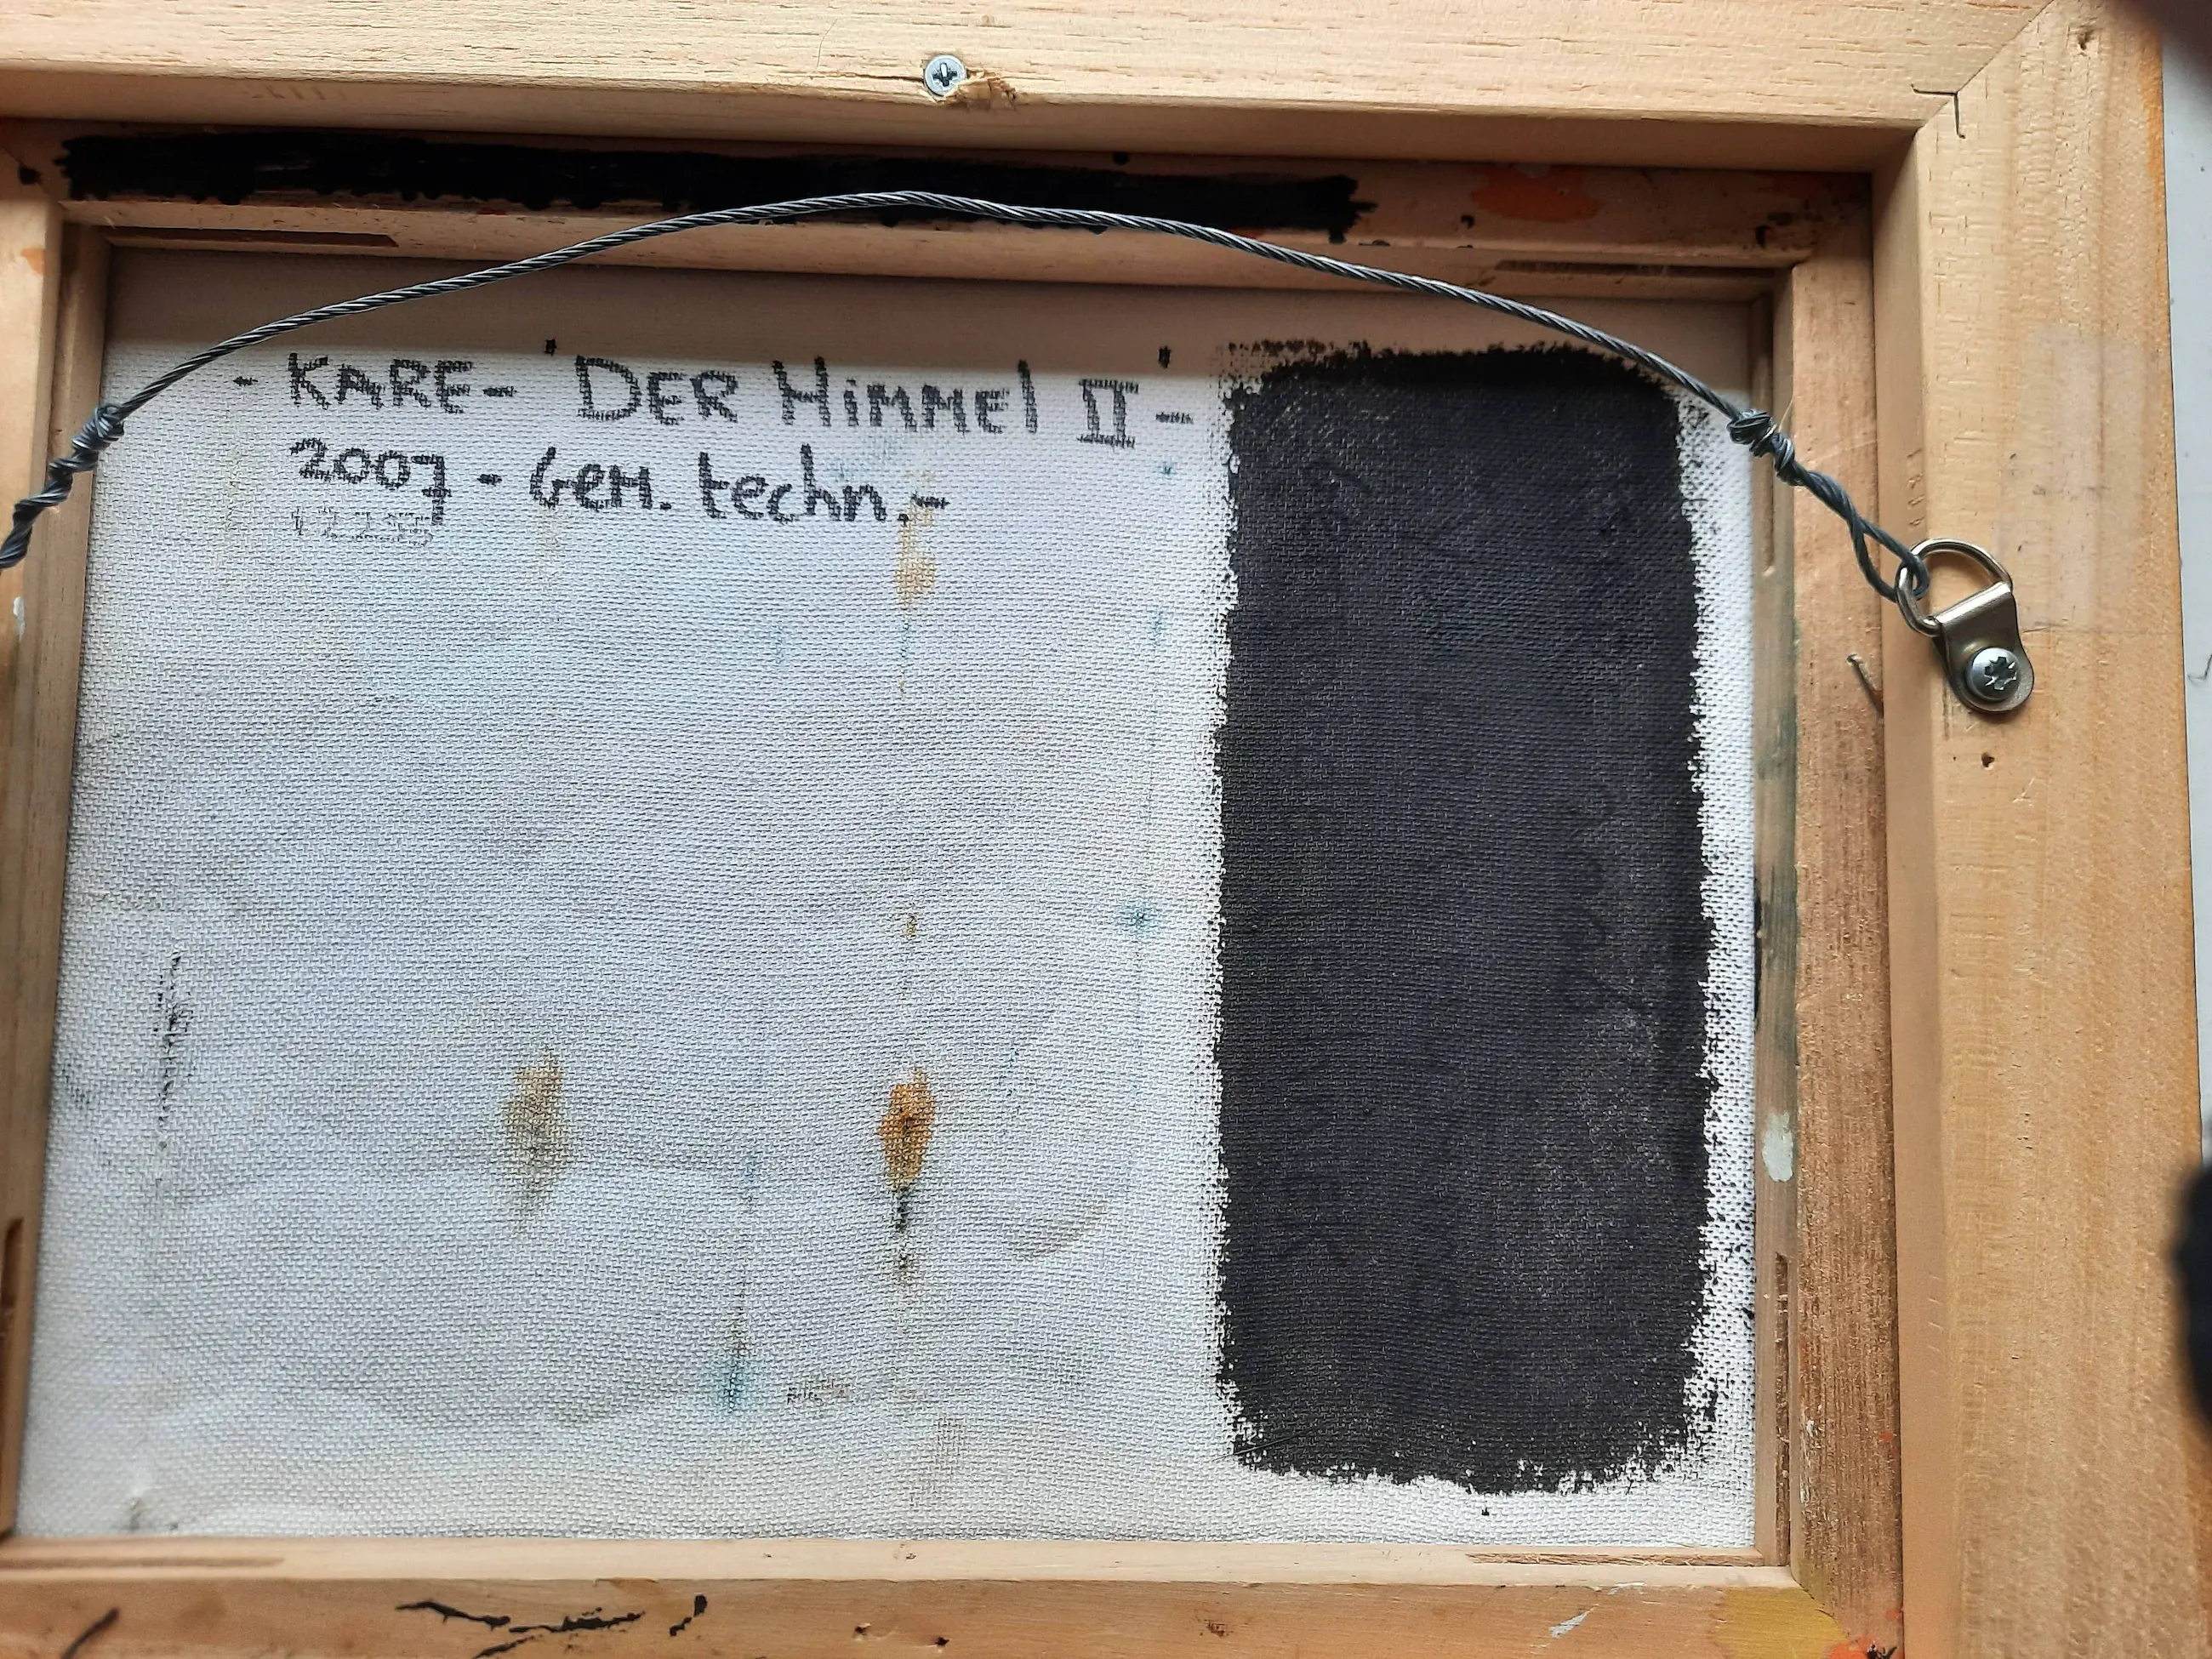 - KARE - DER HiMMEl II -
2007 - GEM. techn. -